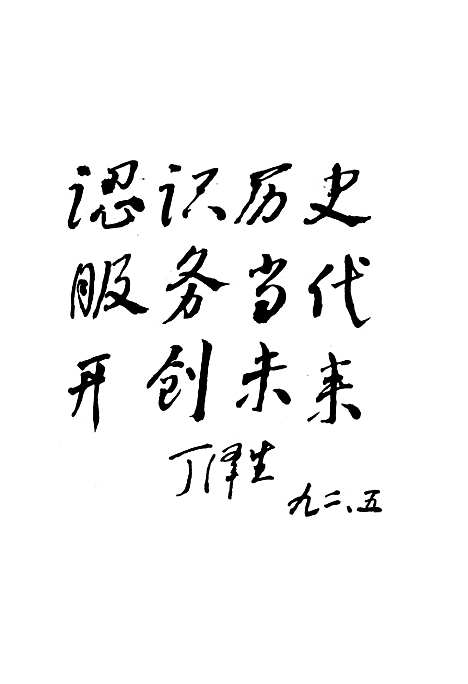 认识历史
服务当代
开创未来
丁泽生
九二、五